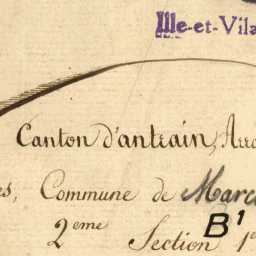 Ille-et-Vila
Canton d'antrain, Arro
es, Commune de Marc
2eme Section 1e
B1